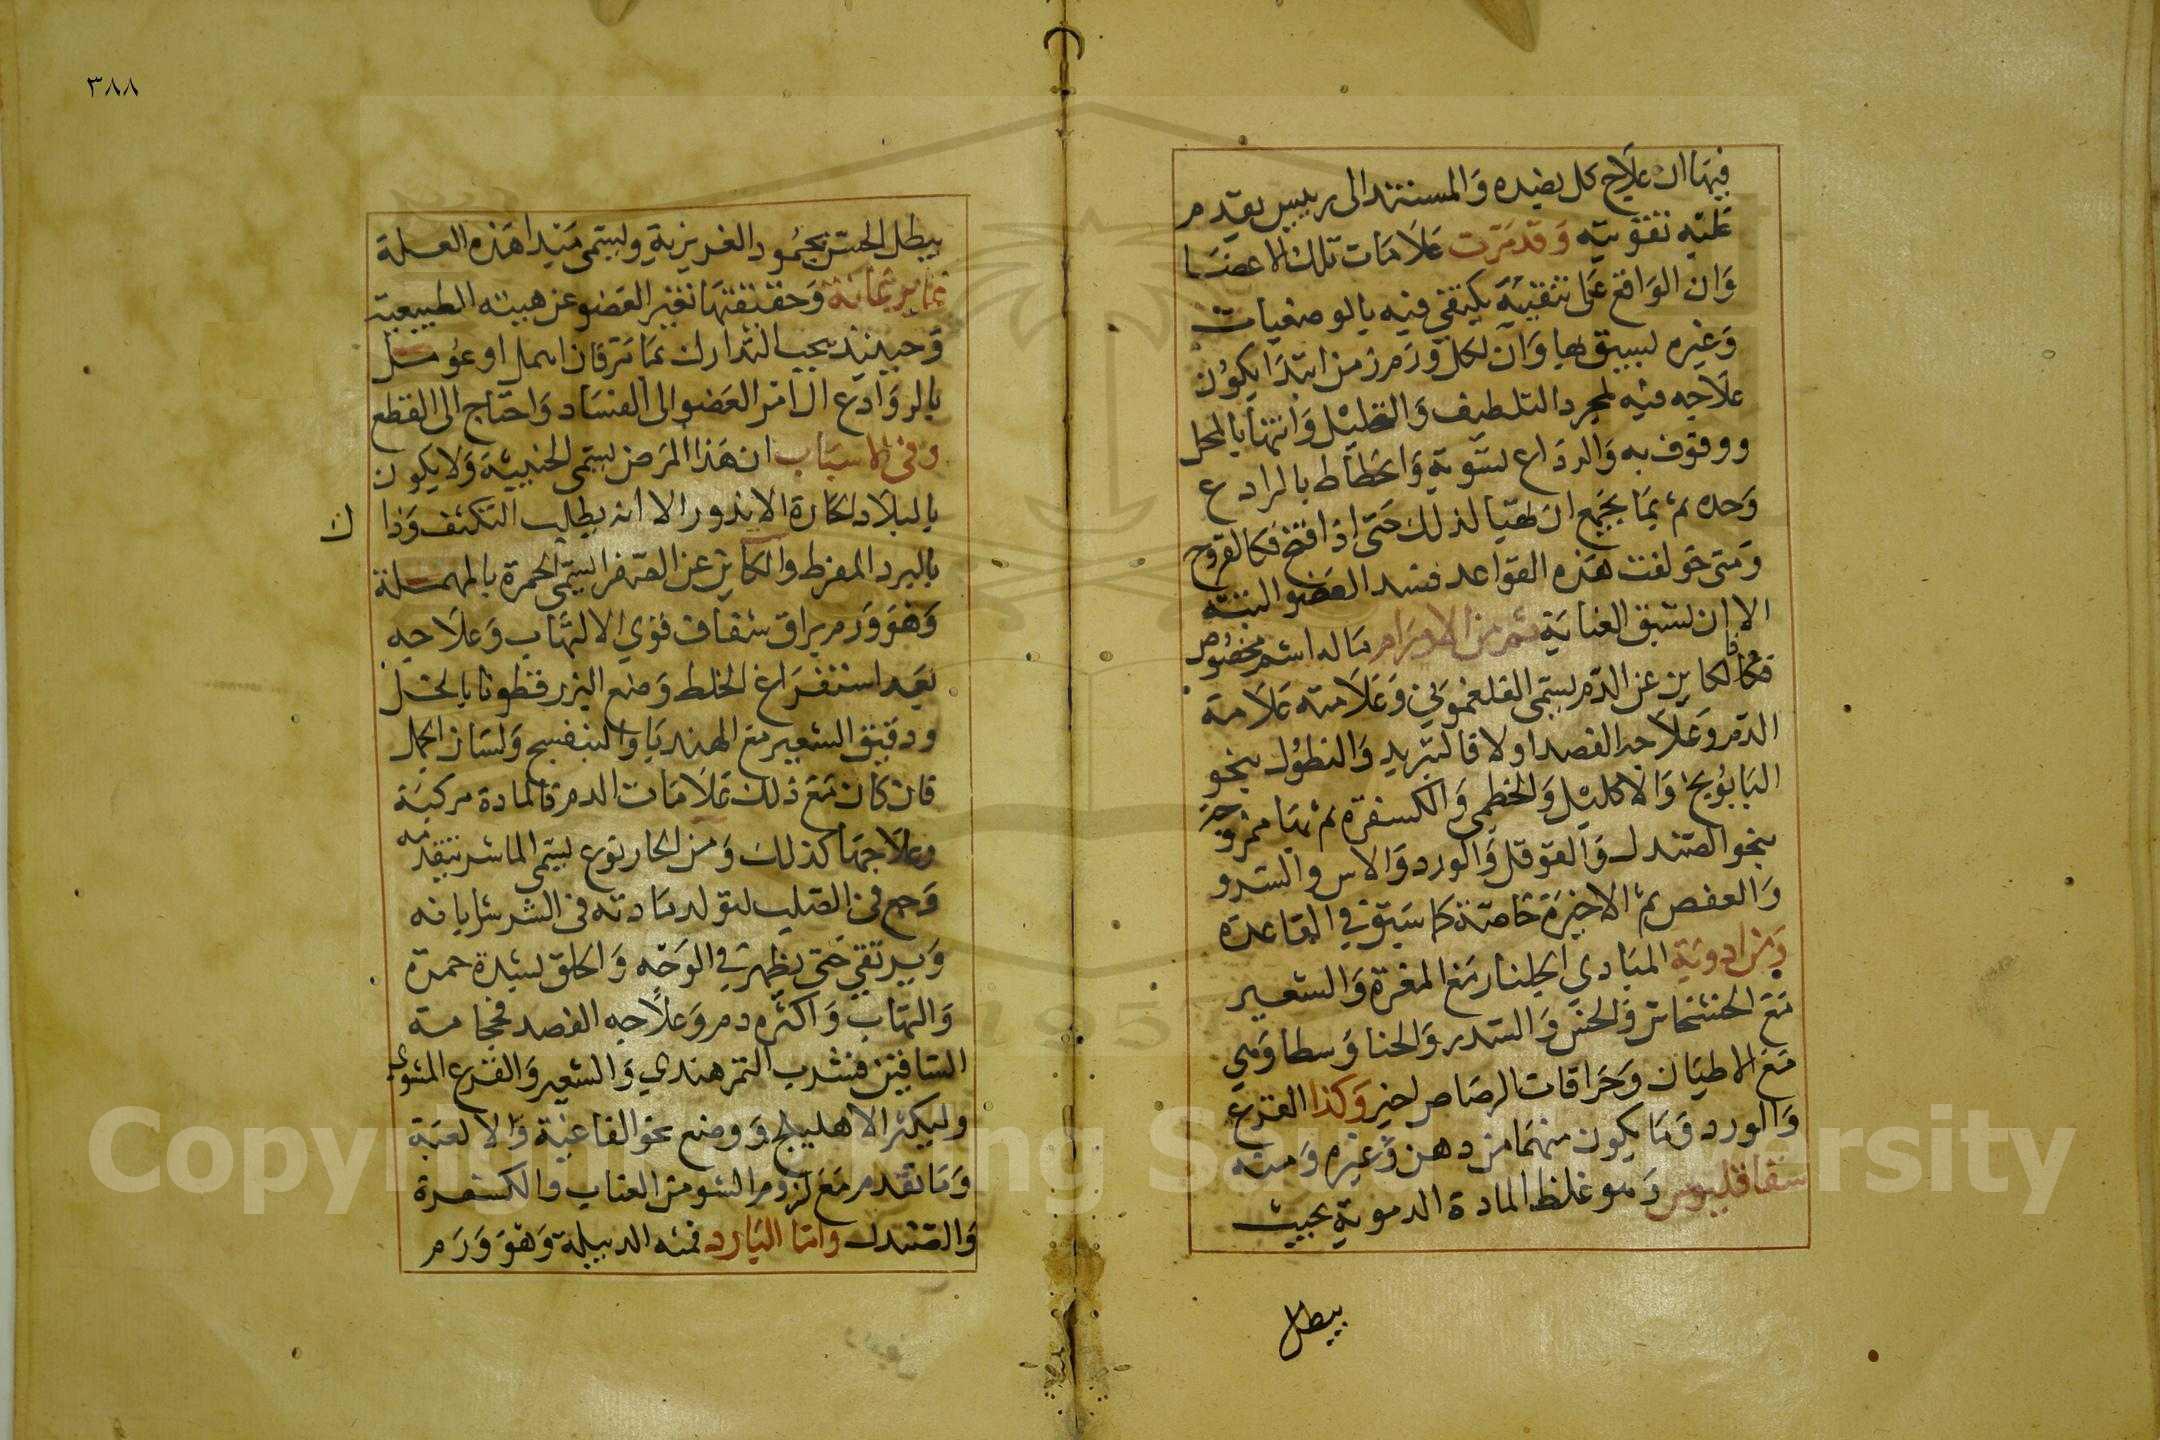 فيها ان علاج كل بضده والمستند الى رييس يقدم
عليه تنقويته وقد مرت علامات تلك الاعضا
وان الواقع عن تنقية يكتفي فيه بالوضعيات
وغيره لسبق بها وان لكل ورم زمن ابتدا يكون
علاجه فيه لمجرد التلطيف والتحليل وانتها بالمحلل
ووقوف به والرداع لسوية وانحطاط بالرادع
وحده ثم بما يجمع ان تهيا لذلك حتى اذا فتح فكالقروح
ومتى خولفت هذه القواعد فسد العضو البتة
الا ان تسبق العناية ثم من الاورام ما له اسم مخصوص
فالكاين عن الدم يسمى الفلغموني وعلامته علامة
الدم وعلاجه الفصد اولا فالتبريد والنطول بنحو
البابونج والاكليل والخطمي والكسفرة ثم بها ممزوجة
بنحو الصندل والفوفل والورد والاس والسرو
والعفص ثم الاخيرة خاصة كما سبق في القاعدة
ومن ادوية المبادي الجلنار مع المغرة والشعير
مع الخشخاش والخس والسدر والحنا وسطا ومي
مع الاطيان وحراقات الرصاص اخير وكذا القرع
والورد وما يكون منهما من دهن وغيره ومنه
سقاقليوس وهو غلظ المادة الدموية بحيث
يبطل
٣٨٨
يبطل الحس بجمود الغريزية ويسمى مبدا هذه العلة
غانغرنانة وحقيقتها تغير العضو عن هيبته الطبيعية
وحينيذ يجب التدارك بما ترقان اهمل او عومل
بالروادع ال امر العضو الى الفساد واحتاج الى القطع
وفي الاسباب ان هذا المرض يسمى الخبيثة ولا يكون
بالبلاد الحارة الا نذورا لا انه يطلب التكثف وذا
ك
بالبرد المفرط والكاين عن الصفرا يسمى الحمرة بالمهملة
وهو ورم براق شفاف قوي الالتهاب وعلاجه
بعد استفراغ الخلط وضع البزر قطونا بالخل
ودقيق الشعير مع الهنديا والبنفسج ولسان الحمل
فان كان مع ذلك علامات الدم فالمادة مركبة
وعلاجها كذلك ومن الحار نوع يسمى الماشر يتقدمه
وجع في الصلب لتولد مادته في الشرشرايانه
ويرتقي حتى يظهر في الوجه والحلق بشدة حمرة
والتهاب واكثره دم وعلاجه الفصد فحجامة
الساقين فشرب التمر هندي والشعير والقرع المشوي
وليكثر الاهليلج ووضع نحو الفاغية والالعبة
وما تقدم مع لزوم الشومن العناب والكسفرة
والصندل واما البارد فمنه الدبيلة وهو ورم